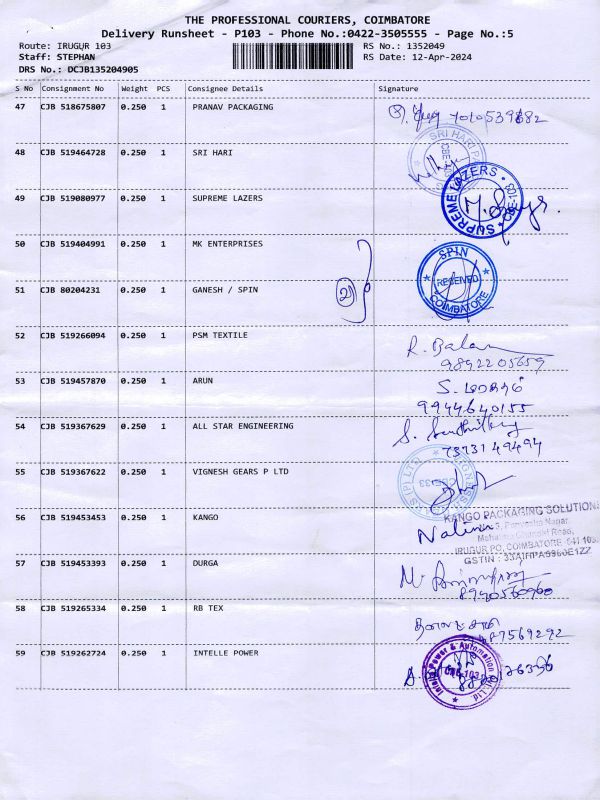 THE PROFESSIONAL COURIERS, COIMBATORE
Delivery Runsheet - P103 - Phone No.:0422-3505555 - Page No.:5
Route: IRUGUR 103 RS No.: 1352049
Staff: STEPHAN RS Date: 12-Apr-2024
DRS No.: DCJB135204905
S No Consignment No Weight PCS Consignee Details Signature
47 CJB 518675807 0.250 1 PRANAV PACKAGING
48 CJB 519464728 0.250 1 SRI HARI
SRI HARI
49 CJB 519080977 0.250 1 SUPREME LAZERS
SUPREME LAZERS
50 CJB 519404991 0.250 1 MK ENTERPRISES
SPIN
RECEIVED
COIMBATORE
51 CJB 80204231 0.250 1 GANESH / SPIN
21
52 CJB 519266094 0.250 1 PSM TEXTILE R. Balan
9892205659
53 CJB 519457870 0.250 1 ARUN
9944640155
54 CJB 519367629 0.250 1 ALL STAR ENGINEERING
7373149494
55 CJB 519367622 0.250 1 VIGNESH GEARS P LTD
56 CJB 519453453 0.250 1 KANGO
KANGO PACKAGING SOLUTION
IRUGUR PO, COIMBATORE
GSTIN :
57 CJB 519453393 0.250 1 DURGA
8940560960
58 CJB 519265334 0.250 1 RB TEX
59 CJB 519262724 0.250 1 INTELLE POWER
Power & Automation